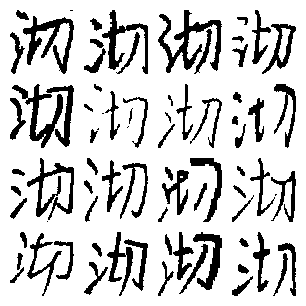 沏沏沏沏
沏沏沏沏
沏沏沏沏
沏沏沏沏